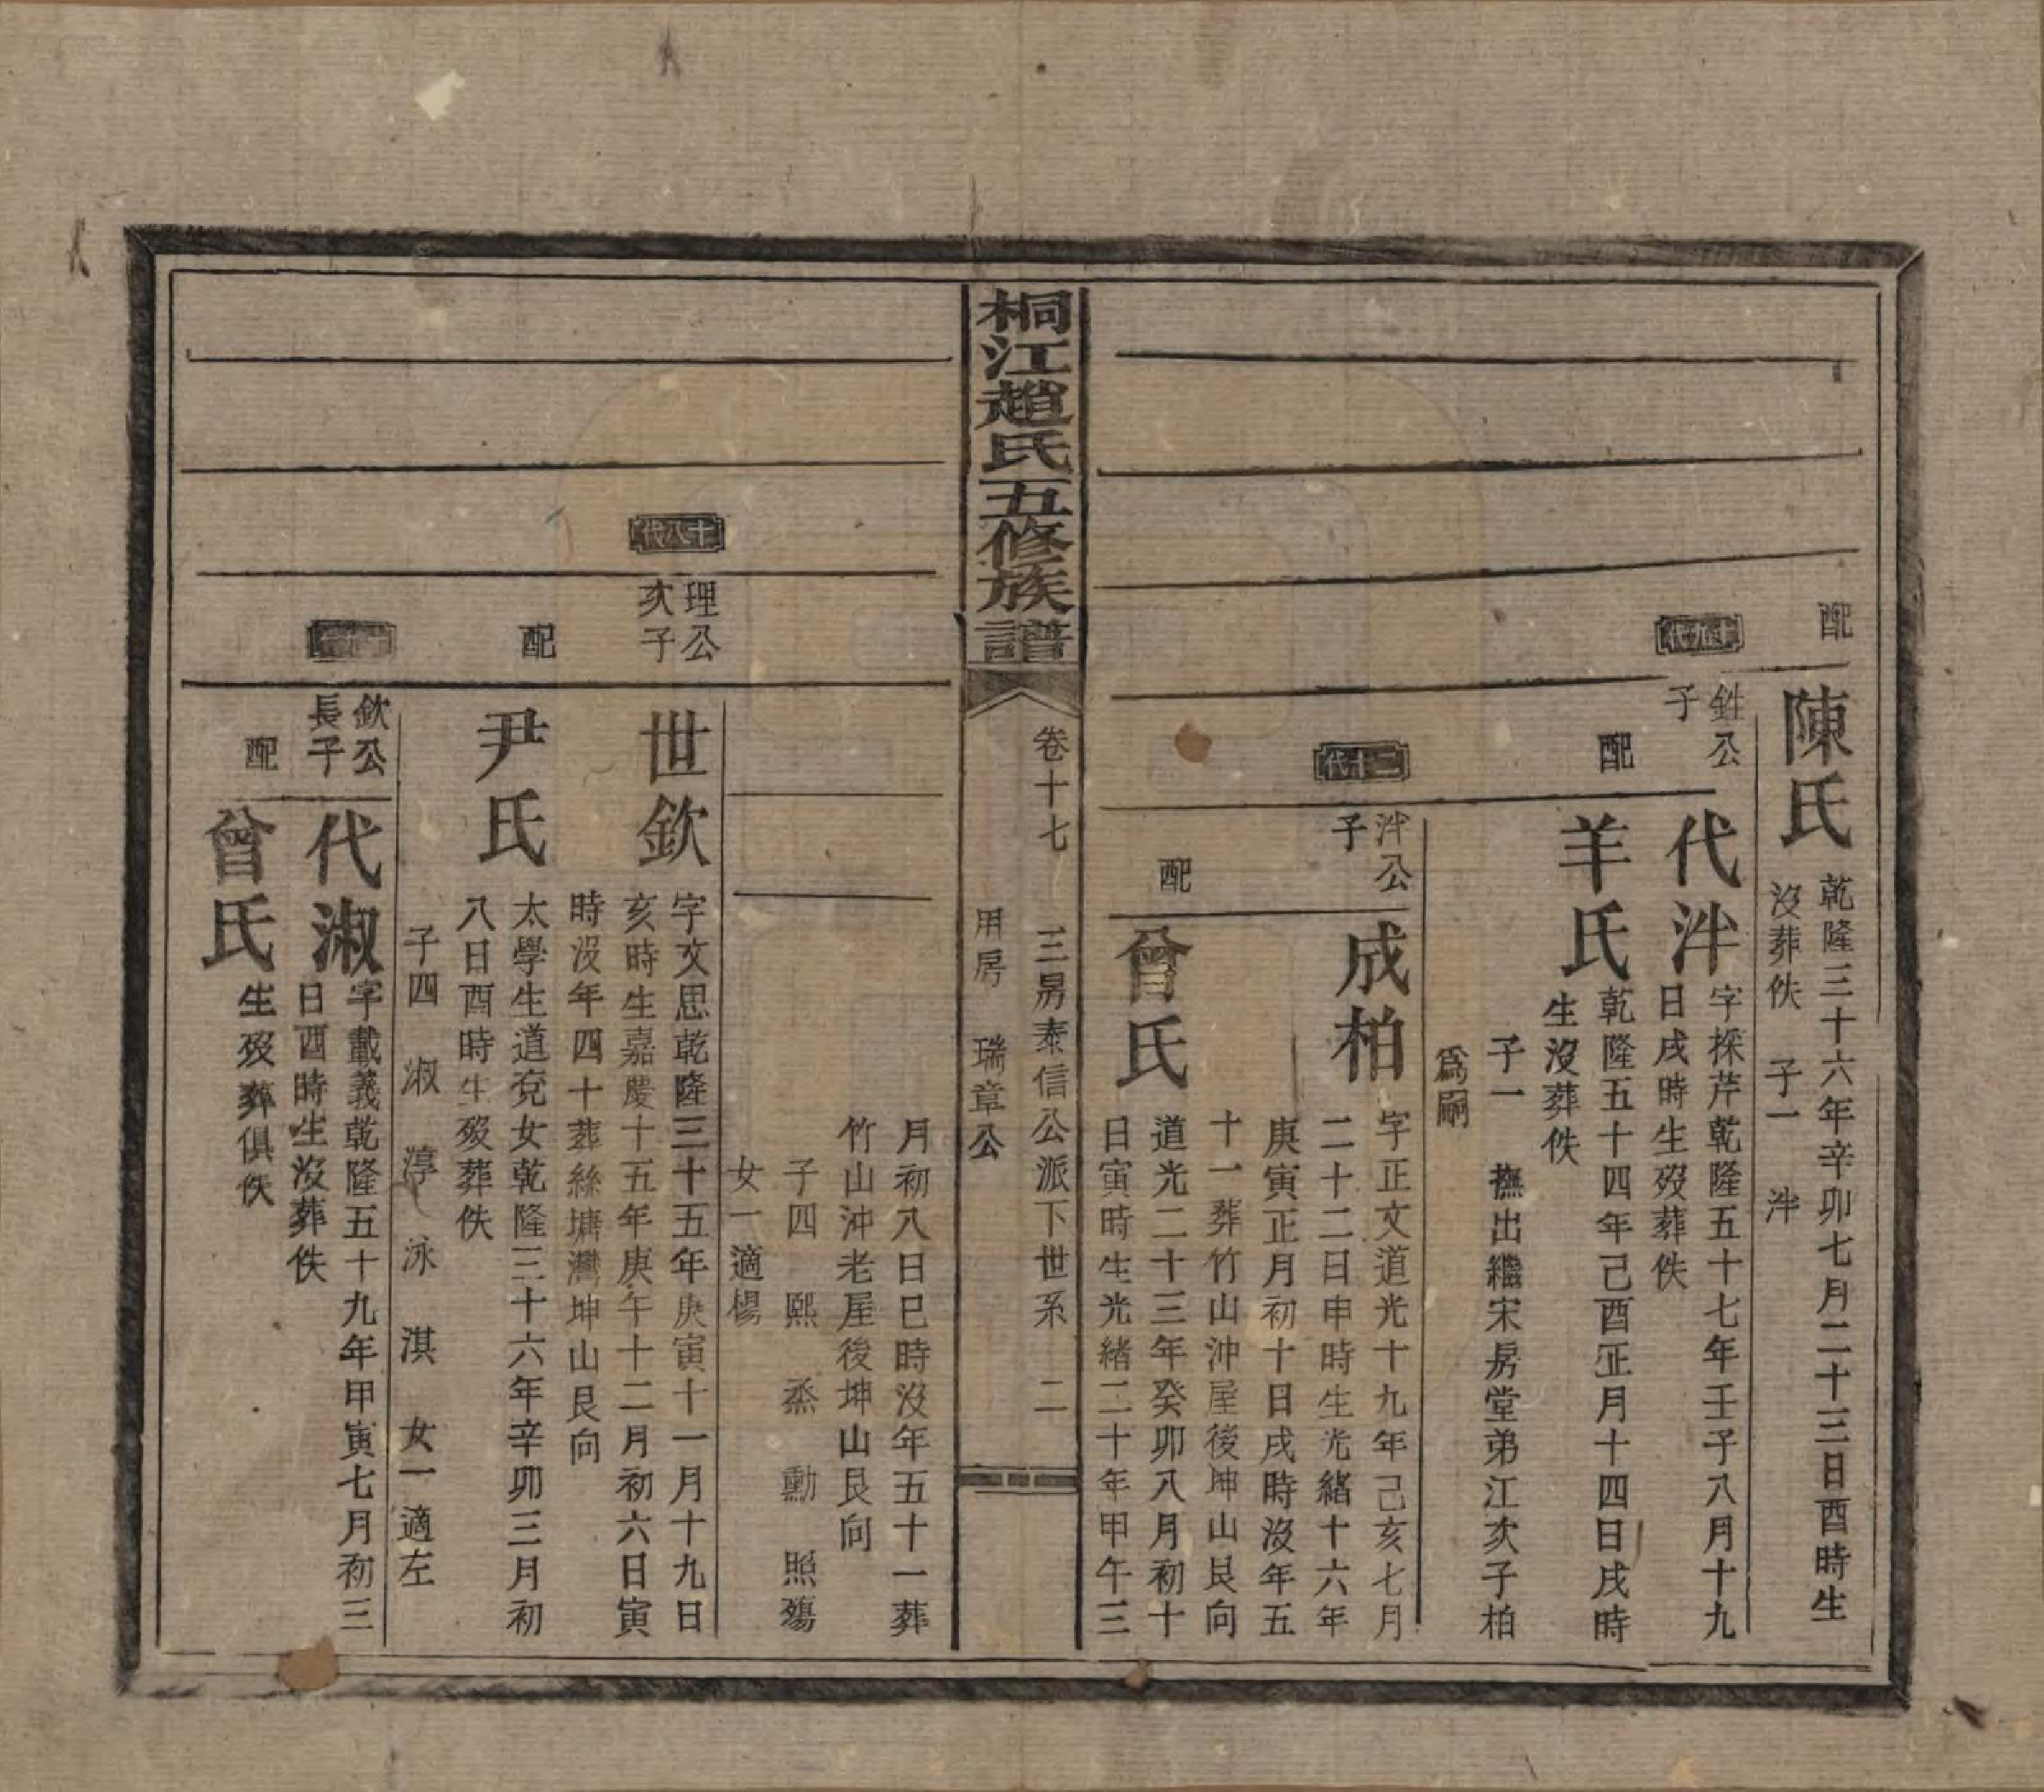 配
陳氏
乾隆三十六年辛卯七月二十三日酉時生
沒葬佚 子一 泮
十九代
鉎公
子
代泮
字採芹乾隆五十七年壬子八月十九
日戌時生歿葬佚
配
羊氏
乾隆五十四年己酉正月十四日戌時
生沒葬佚
子一 撫出繼宋房堂弟江次子柏
爲嗣
二十代
泮公
子
成柏
字正文道光十九年己亥七月
二十二日申時生光緒十六年
庚寅正月初十日戌時沒年五
十一葬竹山沖屋後坤山艮向
配
曾氏
道光二十三年癸卯八月初十
日寅時生光緒二十年甲午三
桐江趙氏五修族譜
卷十七 三房泰信公派下世系 二
用房 瑞章公
月初八日巳時沒年五十一葬
竹山沖老屋後坤山艮向
子四 熙 烝 勳 照殤
女一適楊
十八代
理公
次子
世欽
字文思乾隆三十五年庚寅十一月十九日
亥時生嘉慶十五年庚午十二月初六日寅
時沒年四十葬絲塘灣坤山艮向
配
尹氏
太學生道兗女乾隆三十六年辛卯三月初
八日酉時生歿葬佚
子四 淑 淳 泳 淇 女一適左
欽公
長子
代淑
字戴義乾隆五十九年甲寅七月初三
日酉時生沒葬佚
配
曾氏
生歿葬俱佚